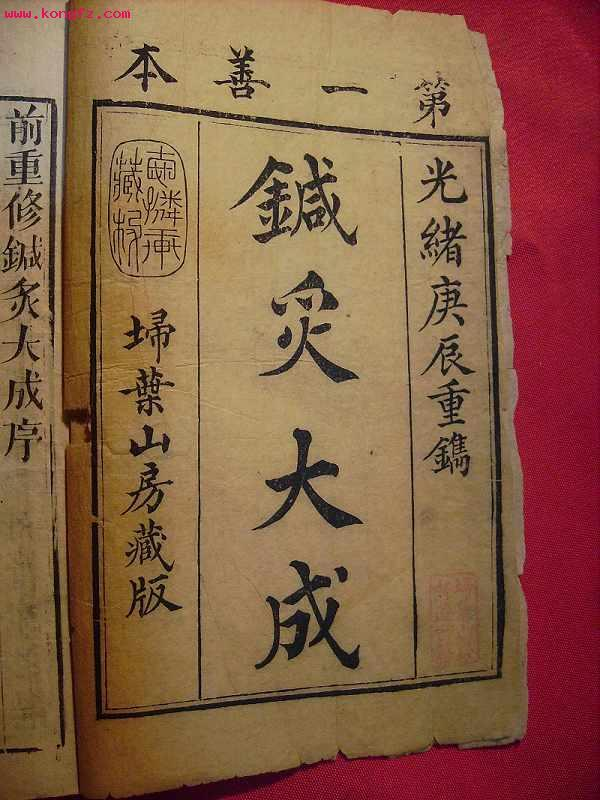 www.kongfz.com
第一善本
光緒庚辰重鐫
鍼灸大成
埽葉山房藏版
前重修鍼灸大成序